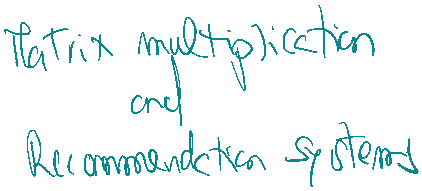 Matrix multiplication
and
Recommendation systems